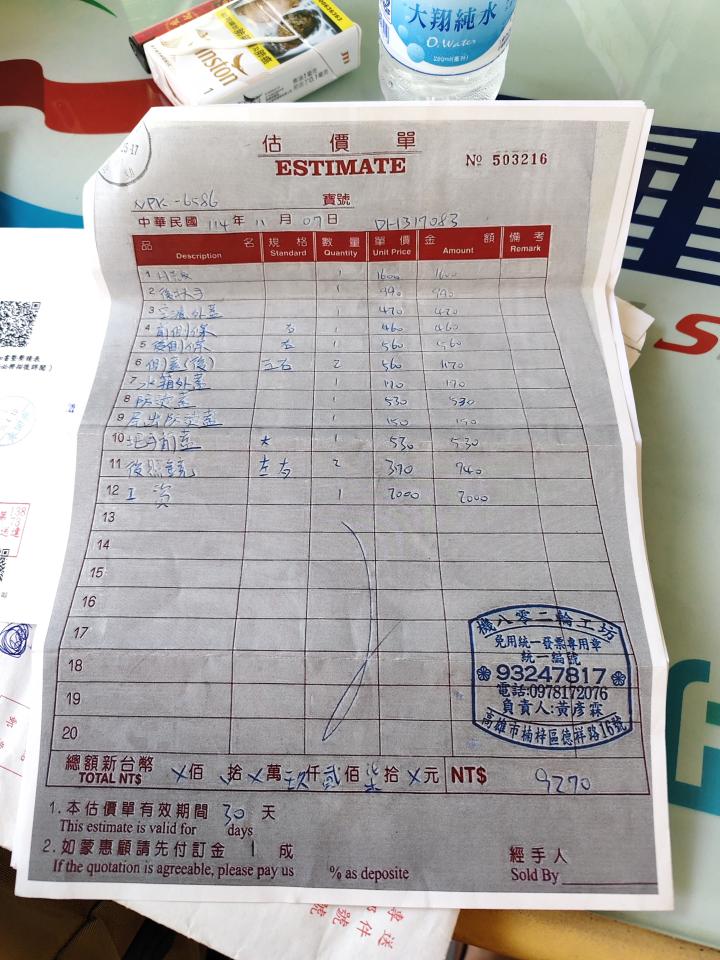 大翔純水
O₂ Water
280ml(毫升)
Winston
估價單
ESTIMATE
№ 503216
NPK-6586 寶號
中華民國 114年 11月 07日
品名 Description 規格 Standard 數量 Quantity 單價 Unit Price 金額 Amount 備考 Remark
1 1 1600 1600
2 後扶手 1 990 990
3 空濾外蓋 1 470 470
4 前側條 右 1 460 460
5 後側條 右 1 560 560
6 側蓋(後) 左右 2 560
7 水箱外蓋 1 170 170
8 防燙蓋 1 530 530
9 尾出防燙蓋 1 150 150
10 1 530 530
11 後照鏡 左右 2 370 740
12 工資 1 2000 2000
13
14
15
16
17
18
19
20
機八零二輪工坊
免用統一發票專用章
統一編號
93247817
電話:0978172076
負責人:黃彥霖
高雄市楠梓區德祥路16號
總額新台幣 TOTAL NT$ X佰 拾 X萬 玖仟 貳佰 柒拾 X元 NT$ 9270
1.本估價單有效期間 30 天
This estimate is valid for days
2.如蒙惠顧請先付訂金 1 成
If the quotation is agreeable, please pay us % as deposite
經手人
Sold By